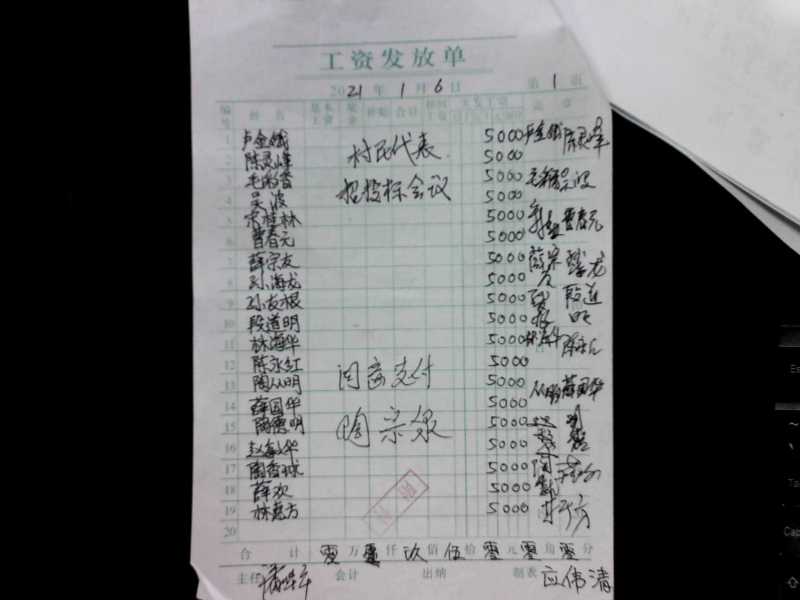 工资发放单
2021年1月6日 第1页
编号 姓名 基本工资 奖金 补贴 合计 扣回工资 实发工资 盖章
1 卢金娥 5000 卢金娥
2 陈灵峰 5000 陈灵峰
3 毛彩香 村民代表 5000
4 吴波 招投标会议 5000 吴波
5 宋桂林 5000
6 曹春元 5000 曹春元
7 薛宗友 5000 薛宗友
8 孙海龙 5000
9 孙友根 5000
10 段道明 5000 段道明
11 林海华 5000 林海华
12 陈永红 5000
13 陶从明 同意支付 5000 从明
14 薛国华 5000 薛国华
15 陶德明 陶宗泉 5000
16 赵敏华 5000
17 陶香球 5000
18 薛欢 5000
19 林惠方 5000
20
合计 零万零仟玖佰伍拾零元零角零分
主任 会计 出纳 制表 应伟清